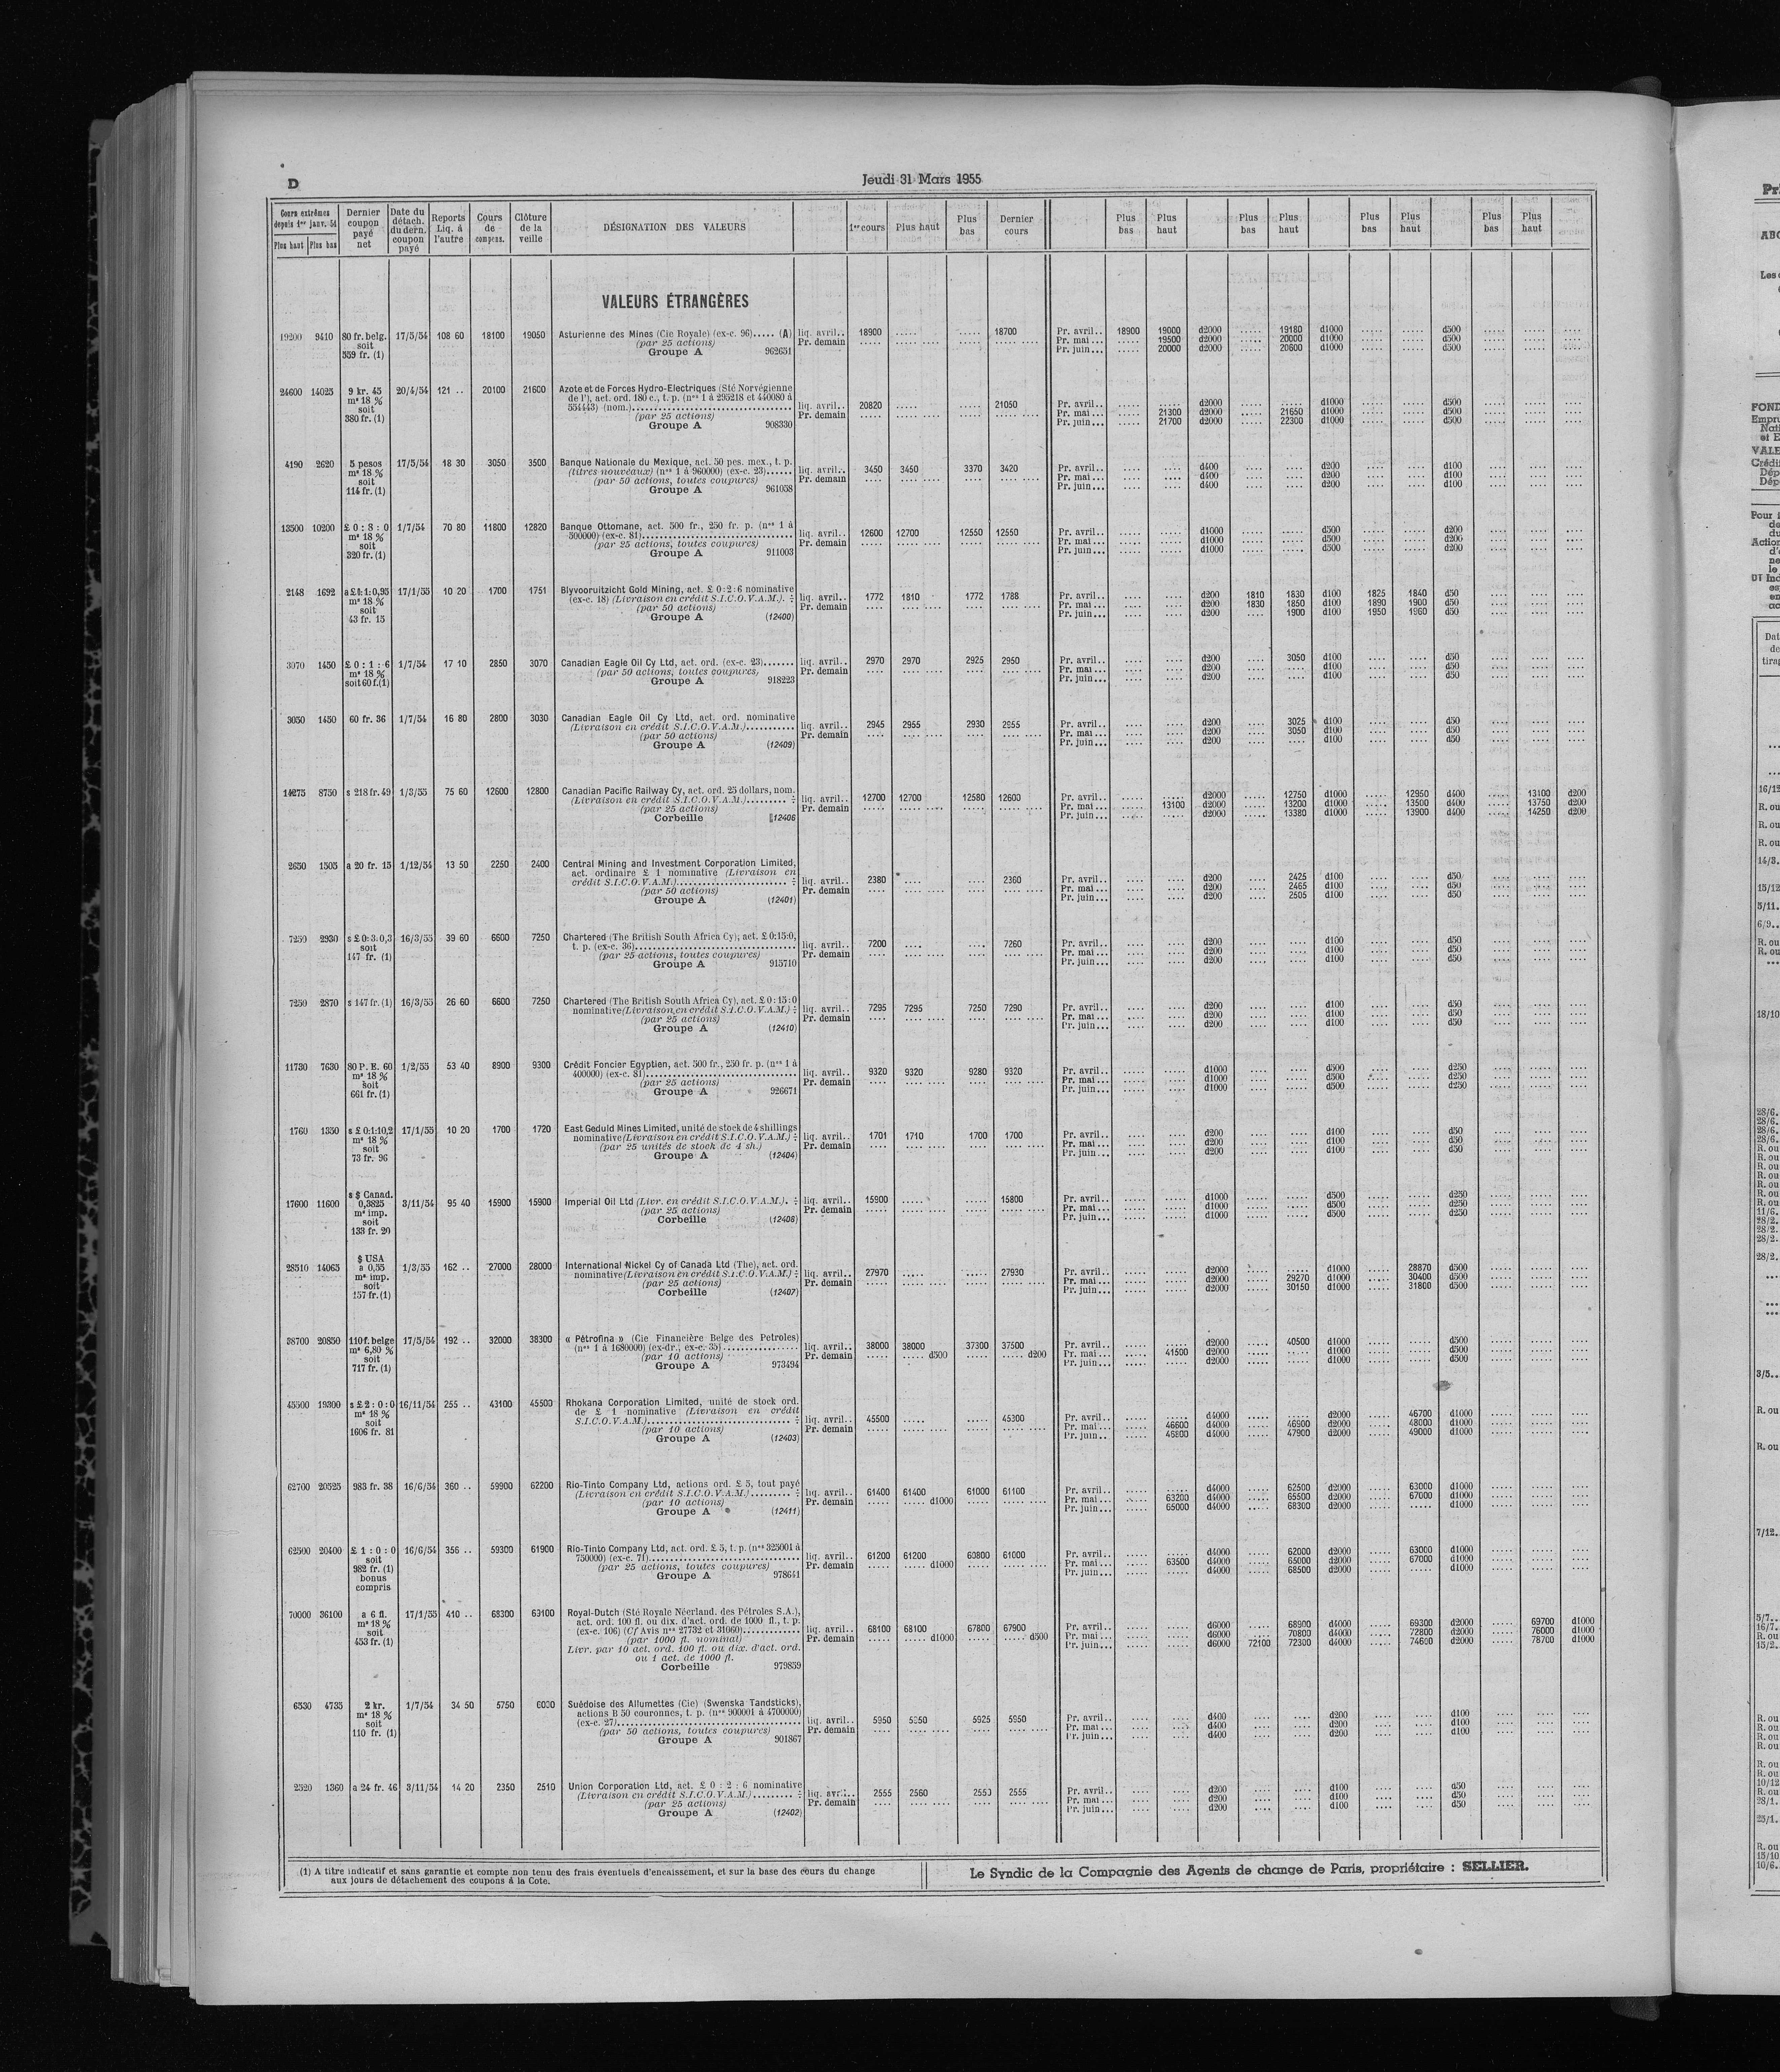 D
Jeudi 31 Mars 1955
Cours extrêmes depuis 1er janv. 54
Plus haut Plus bas
Dernier coupon payé net
Date du détach. du dern. coupon payé
Reports Liq. à l'autre
Cours de compens.
Clôture de la veille
DÉSIGNATION DES VALEURS
1er cours
Plus haut
Plus bas
Dernier cours
Plus bas
Plus haut
Plus bas
Plus haut
Plus bas
Plus haut
Plus bas
Plus haut
VALEURS ÉTRANGÈRES
19200 9410 80 fr. belg. 17/5/54 108 60 18100 19050 Asturienne des Mines (Cie Royale) (ex-c. 96)..... (A) liq. avril.. 18900 ..... ..... 18700 Pr. avril.. 18900 19000 d2000 ..... 19180 d1000 ..... ..... d500
soit (par 25 actions) Pr. demain Pr. mai ... ..... 19500 d2000 ..... 20000 d1000 ..... ..... d500
559 fr. (1) Groupe A 962651 Pr. juin... ..... 20000 d2000 ..... 20600 d1000 ..... ..... d500
24600 14025 9 kr. 45 20/4/54 121 .. 20100 21600 Azote et de Forces Hydro-Electriques (Sté Norvégienne
me 18 % de l'), act. ord. 180 c., t. p. (nos 1 à 295218 et 440080 à
soit 554443) (nom.) liq. avril.. 20820 ..... ..... 21050 Pr. avril.. ..... ..... d2000 ..... ..... d1000 ..... ..... d500
380 fr. (1) (par 25 actions) Pr. demain Pr. mai ... ..... 21300 d2000 ..... 21650 d1000 ..... ..... d500
Groupe A 908330 Pr. juin... ..... 21700 d2000 ..... 22300 d1000 ..... ..... d500
4190 2620 5 pesos 17/5/54 18 30 3050 3500 Banque Nationale du Mexique, act. 50 pes. mex., t. p.
me 18 % (titres nouveaux) (nos 1 à 960000) (ex-c. 23)...... liq. avril.. 3450 3450 3370 3420 Pr. avril.. .... .... d400 .... .... d200 .... .... d100
soit (par 50 actions, toutes coupures) Pr. demain Pr. mai ... .... .... d400 .... .... d200 .... .... d100
114 fr. (1) Groupe A 961058 Pr. juin... .... .... d400 .... .... d200 .... .... d100
13500 10200 £ 0 : 8 : 0 1/7/54 70 80 11800 12820 Banque Ottomane, act. 500 fr., 250 fr. p. (nos 1 à
me 18 % 500000) (ex-c. 81) liq. avril.. 12600 12700 12550 12550 Pr. avril.. ..... ..... d1000 ..... ..... d500 ..... ..... d200
soit (par 25 actions, toutes coupures) Pr. demain Pr. mai ... ..... ..... d1000 ..... ..... d500 ..... ..... d200
320 fr. (1) Groupe A 911003 Pr. juin... ..... ..... d1000 ..... ..... d500 ..... ..... d200
2148 1692 a £ 0:1:0,95 17/1/55 10 20 1700 1751 Blyvooruitzicht Gold Mining, act. £ 0:2:6 nominative
me 18 % (ex-c. 18) (Livraison en crédit S.I.C.O.V.A.M.). ÷ liq. avril.. 1772 1810 1772 1788 Pr. avril.. .... .... d200 1810 1830 d100 1825 1840 d50
soit (par 50 actions) Pr. demain Pr. mai ... .... .... d200 1830 1850 d100 1890 1900 d50
43 fr. 15 Groupe A (12400) Pr. juin... .... .... d200 .... 1900 d100 1950 1960 d50
3070 1450 £ 0 : 1 : 6 1/7/54 17 10 2850 3070 Canadian Eagle Oil Cy Ltd, act. ord. (ex-c. 23)....... liq. avril.. 2970 2970 2925 2950 Pr. avril.. .... .... d200 .... 3050 d100 .... .... d50
me 18 % (par 50 actions, toutes coupures) Pr. demain Pr. mai ... .... .... d200 .... .... d100 .... .... d50
soit 60 f.(1) Groupe A 918223 Pr. juin... .... .... d200 .... .... d100 .... .... d50
3050 1450 60 fr. 36 1/7/54 16 80 2800 3030 Canadian Eagle Oil Cy Ltd, act. ord. nominative
(Livraison en crédit S.I.C.O.V.A.M.) liq. avril.. 2945 2955 2930 2955 Pr. avril.. .... .... d200 .... 3025 d100 .... .... d50
(par 50 actions) Pr. demain Pr. mai ... .... .... d200 .... 3050 d100 .... .... d50
Groupe A (12409) Pr. juin... .... .... d200 .... .... d100 .... .... d50
14275 8750 s 218 fr. 49 1/3/55 75 60 12600 12800 Canadian Pacific Railway Cy, act. ord. 25 dollars, nom.
(Livraison en crédit S.I.C.O.V.A.M.)......... ÷ liq. avril.. 12700 12700 12580 12600 Pr. avril.. ..... ..... d2000 ..... 12750 d1000 ..... 12950 d400 ..... 13100 d200
(par 25 actions) Pr. demain Pr. mai ... ..... 13100 d2000 ..... 13200 d1000 ..... 13500 d400 ..... 13750 d200
Corbeille 12406 Pr. juin... ..... ..... d2000 ..... 13380 d1000 ..... 13900 d400 ..... 14250 d200
2650 1505 a 20 fr. 15 1/12/54 13 50 2250 2400 Central Mining and Investment Corporation Limited,
act. ordinaire £ 1 nominative (Livraison en
crédit S.I.C.O.V.A.M.) ÷ liq. avril.. 2380 .... .... 2360 Pr. avril.. .... .... d200 .... 2425 d100 .... .... d50
(par 50 actions) Pr. demain Pr. mai ... .... .... d200 .... 2465 d100 .... .... d50
Groupe A (12401) Pr. juin... .... .... d200 .... 2505 d100 .... .... d50
7250 2930 s £ 0:3:0,3 16/3/55 39 60 6600 7250 Chartered (The British South Africa Cy), act. £ 0:15:0,
soit t. p. (ex-c. 36) liq. avril.. 7200 .... .... 7260 Pr. avril.. .... .... d200 .... .... d100 .... .... d50
147 fr. (1) (par 25 actions, toutes coupures) Pr. demain Pr. mai ... .... .... d200 .... .... d100 .... .... d50
Groupe A 915710 Pr. juin... .... .... d200 .... .... d100 .... .... d50
7250 2870 s 147 fr. (1) 16/3/55 26 60 6600 7250 Chartered (The British South Africa Cy), act. £ 0:15:0
nominative (Livraison en crédit S.I.C.O.V.A.M.) ÷ liq. avril.. 7295 7295 7250 7290 Pr. avril.. .... .... d200 .... .... d100 .... .... d50
(par 25 actions) Pr. demain Pr. mai ... .... .... d200 .... .... d100 .... .... d50
Groupe A (12410) Pr. juin... .... .... d200 .... .... d100 .... .... d50
11730 7630 80 P. E. 60 1/2/55 53 40 8900 9300 Crédit Foncier Egyptien, act. 500 fr., 250 fr. p. (nos 1 à
me 18 % 400000) (ex-c. 81) liq. avril.. 9320 9320 9280 9320 Pr. avril.. .... .... d1000 .... .... d500 .... .... d250
soit (par 25 actions) Pr. demain Pr. mai ... .... .... d1000 .... .... d500 .... .... d250
661 fr. (1) Groupe A 926671 Pr. juin... .... .... d1000 .... .... d500 .... .... d250
1760 1350 s £ 0:1:10,2 17/1/55 10 20 1700 1720 East Geduld Mines Limited, unité de stock de 4 shillings
me 18 % nominative (Livraison en crédit S.I.C.O.V.A.M.) ÷ liq. avril.. 1701 1710 1700 1700 Pr. avril.. .... .... d200 .... .... d100 .... .... d50
soit (par 25 unités de stock de 4 sh.) Pr. demain Pr. mai ... .... .... d200 .... .... d100 .... .... d50
73 fr. 96 Groupe A (12404) Pr. juin... .... .... d200 .... .... d100 .... .... d50
s $ Canad.
17600 11600 0,3825 3/11/54 95 40 15900 15900 Imperial Oil Ltd (Livr. en crédit S.I.C.O.V.A.M.). ÷ liq. avril.. 15900 ..... ..... 15800 Pr. avril.. ..... ..... d1000 ..... ..... d500 ..... ..... d250
me imp. (par 25 actions) Pr. demain Pr. mai ... ..... ..... d1000 ..... ..... d500 ..... ..... d250
soit Corbeille (12408) Pr. juin... ..... ..... d1000 ..... ..... d500 ..... ..... d250
133 fr. 20
$ USA
28510 14065 a 0,55 1/3/55 162 .. 27000 28000 International Nickel Cy of Canada Ltd (The), act. ord.
me imp. nominative (Livraison en crédit S.I.C.O.V.A.M.) ÷ liq. avril.. 27970 ..... ..... 27930 Pr. avril.. ..... ..... d2000 ..... ..... d1000 ..... 28870 d500
soit (par 25 actions) Pr. demain Pr. mai ... ..... ..... d2000 ..... 29270 d1000 ..... 30400 d500
157 fr. (1) Corbeille (12407) Pr. juin... ..... ..... d2000 ..... 30150 d1000 ..... 31800 d500
38700 20850 110 f. belge 17/5/54 192 .. 32000 38300 « Pétrofina » (Cie Financière Belge des Petroles)
me 6,80 % (nos 1 à 1680000) (ex-dr., ex-c. 35) liq. avril.. 38000 38000 37300 37500 Pr. avril.. ..... ..... d2000 ..... 40500 d1000 ..... ..... d500
soit (par 10 actions) Pr. demain ..... ..... d500 ..... ..... d200 Pr. mai ... ..... 41500 d2000 ..... ..... d1000 ..... ..... d500
717 fr. (1) Groupe A 973494 Pr. juin... ..... ..... d2000 ..... ..... d1000 ..... ..... d500
45500 19300 s £ 2 : 0 : 0 16/11/54 255 .. 43100 45500 Rhokana Corporation Limited, unité de stock ord.
me 18 % de £ 1 nominative (Livraison en crédit
soit S.I.C.O.V.A.M.) ÷ liq. avril.. 45500 ..... ..... 45300 Pr. avril.. ..... ..... d4000 ..... ..... d2000 ..... 46700 d1000
1606 fr. 81 (par 10 actions) Pr. demain Pr. mai ... ..... 46600 d4000 ..... 46900 d2000 ..... 48000 d1000
Groupe A (12403) Pr. juin.. ..... 46800 d4000 ..... 47900 d2000 ..... 49000 d1000
62700 20525 983 fr. 38 16/6/54 360 .. 59900 62200 Rio-Tinto Company Ltd, actions ord. £ 5, tout payé
(Livraison en crédit S.I.C.O.V.A.M.)......... ÷ liq. avril.. 61400 61400 61000 61100 Pr. avril.. ..... ..... d4000 ..... 62500 d2000 ..... 63000 d1000
(par 10 actions) Pr. demain ..... ..... d1000 Pr. mai ... ..... 63200 d4000 ..... 65500 d2000 ..... 67000 d1000
Groupe A (12411) Pr. juin... ..... 65000 d4000 ..... 68300 d2000 ..... ..... d1000
62500 20400 £ 1 : 0 : 0 16/6/54 356 .. 59300 61900 Rio-Tinto Company Ltd, act. ord. £ 5, t. p. (nos 325001 à
soit 750000) (ex-c. 71) liq. avril.. 61200 61200 60800 61000 Pr. avril.. ..... ..... d4000 ..... 62000 d2000 ..... 63000 d1000
982 fr. (1) (par 25 actions, toutes coupures) Pr. demain ..... ..... d1000 Pr. mai ... ..... 63500 d4000 ..... 65000 d2000 ..... 67000 d1000
bonus Groupe A 978641 Pr. juin... ..... ..... d4000 ..... 68500 d2000 ..... ..... d1000
compris
70000 36100 a 6 fl. 17/1/55 410 .. 68300 63100 Royal-Dutch (Sté Royale Néerland. des Pétroles S.A.),
me 18 % act. ord. 100 fl. ou dix. d'act. ord. de 1000 fl., t. p.
soit (ex-c. 106) (Cf Avis nos 27732 et 31060) liq. avril.. 68100 68100 67800 67900 Pr. avril.. ..... ..... d6000 ..... 68900 d4000 ..... 69300 d2000 ..... 69700 d1000
453 fr. (1) (par 1000 fl. nominal) Pr. demain ..... ..... d1000 ..... ..... d500 Pr. mai ... ..... ..... d6000 ..... 70800 d4000 ..... 72800 d2000 ..... 76000 d1000
Livr. par 10 act. ord. 100 fl. ou dix. d'act. ord. Pr. juin... ..... ..... d6000 72100 72300 d4000 ..... 74600 d2000 ..... 78700 d1000
ou 1 act. de 1000 fl.
Corbeille 979859
6530 4735 2 kr. 1/7/54 34 50 5750 6000 Suédoise des Allumettes (Cie) (Swenska Tandsticks),
me 18 % actions B 50 couronnes, t. p. (nos 900001 à 4700000)
soit (ex-c. 27) liq. avril.. 5950 5950 5925 5950 Pr. avril.. .... .... d400 .... .... d200 .... .... d100
110 fr. (1) (par 50 actions, toutes coupures) Pr. demain Pr. mai ... .... .... d400 .... .... d200 .... .... d100
Groupe A 901867 Pr. juin... .... .... d400 .... .... d200 .... .... d100
2520 1360 a 24 fr. 46 3/11/54 14 20 2350 2510 Union Corporation Ltd, act. £ 0 : 2 : 6 nominative
(Livraison en crédit S.I.C.O.V.A.M.)......... ÷ liq. avril.. 2555 2560 2550 2555 Pr. avril.. .... .... d200 .... .... d100 .... .... d50
(par 25 actions) Pr. demain Pr. mai ... .... .... d200 .... .... d100 .... .... d50
Groupe A (12402) Pr. juin... .... .... d200 .... .... d100 .... .... d50
(1) A titre indicatif et sans garantie et compte non tenu des frais éventuels d'encaissement, et sur la base des cours du change
aux jours de détachement des coupons à la Cote.
Le Syndic de la Compagnie des Agents de change de Paris, propriétaire : SELLIER.